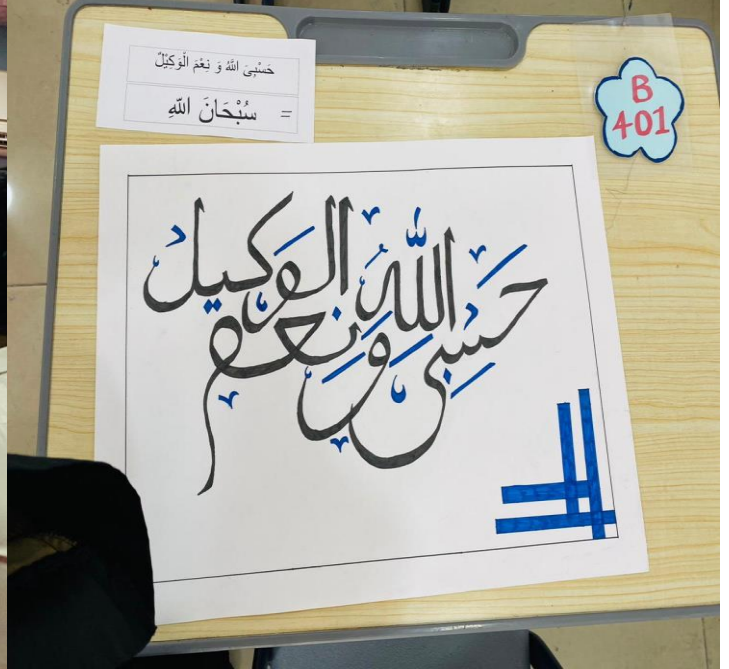 حَسْبِىَ اللّٰهُ وَ نِعْمَ الْوَكِيْلُ
= سُبْحَانَ اللّٰهِ
B
401
حَسْبِىَ اللّٰهُ وَنِعْمَ الْوَكِيْل